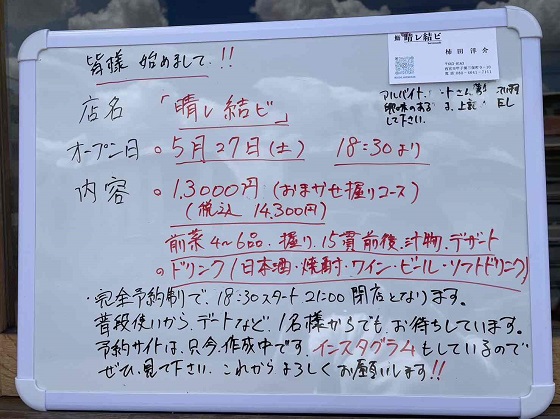 皆様 始めまして.!!
鮨 晴レ結ビ
柿田洋介
店名 「晴レ結ビ」
アルバイト、
興味のある
して下さい.
オープン日 。5月27日(土) 18:30より
内容 。1.3000円(おまかせ握りコース)
(税込 14.300円)
前菜4〜6品.握り.15貫前後.汁物.デザート
。ドリンク(日本酒・焼酎・ワイン・ビール・ソフトドリンク)
・完全予約制で、18:30スタート21:00閉店となります。
普段使いから、デートなど、1名様からでも、お待ちしています。
予約サイトは、只今、作成中です.インスタグラムもしているので
ぜひ、見て下さい.これからよろしくお願いします!!